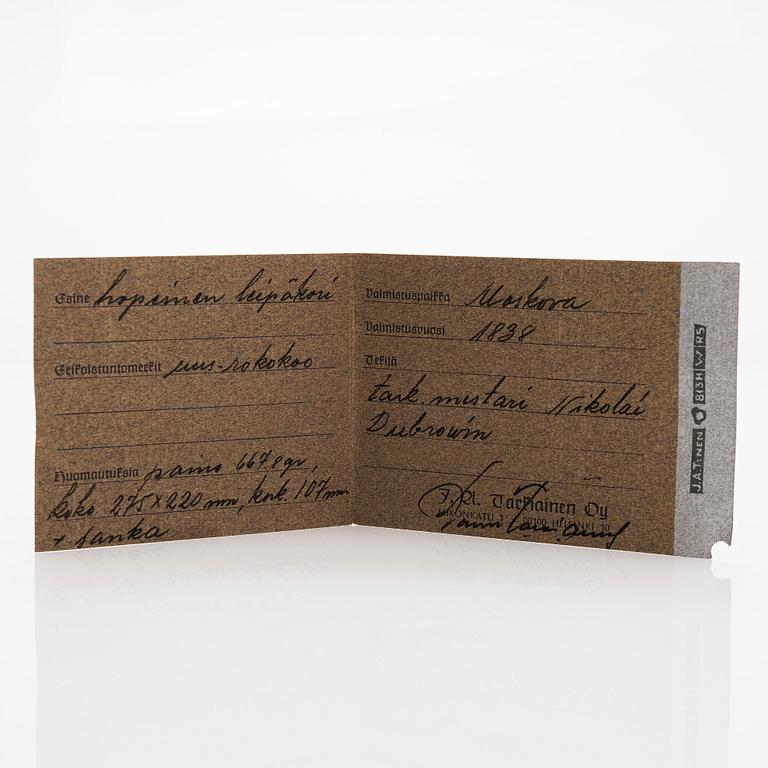 Esine hopeinen leipäkori
Erikoistuntomerkit uus-rokokoo
Huomautuksia paino 667.8 gr,
koko 275 x 220 mm, kork. 107 mm
+ sanka
Valmistuspaikka Moskova
Valmistusvuosi 1838
Tekijä
tark. mestari Nikolai
Dubrowin
J. A. Tarkiainen Oy
MIKONKATU 1 00100 HELSINKI 10
J.A.T:NEN 813H W R5